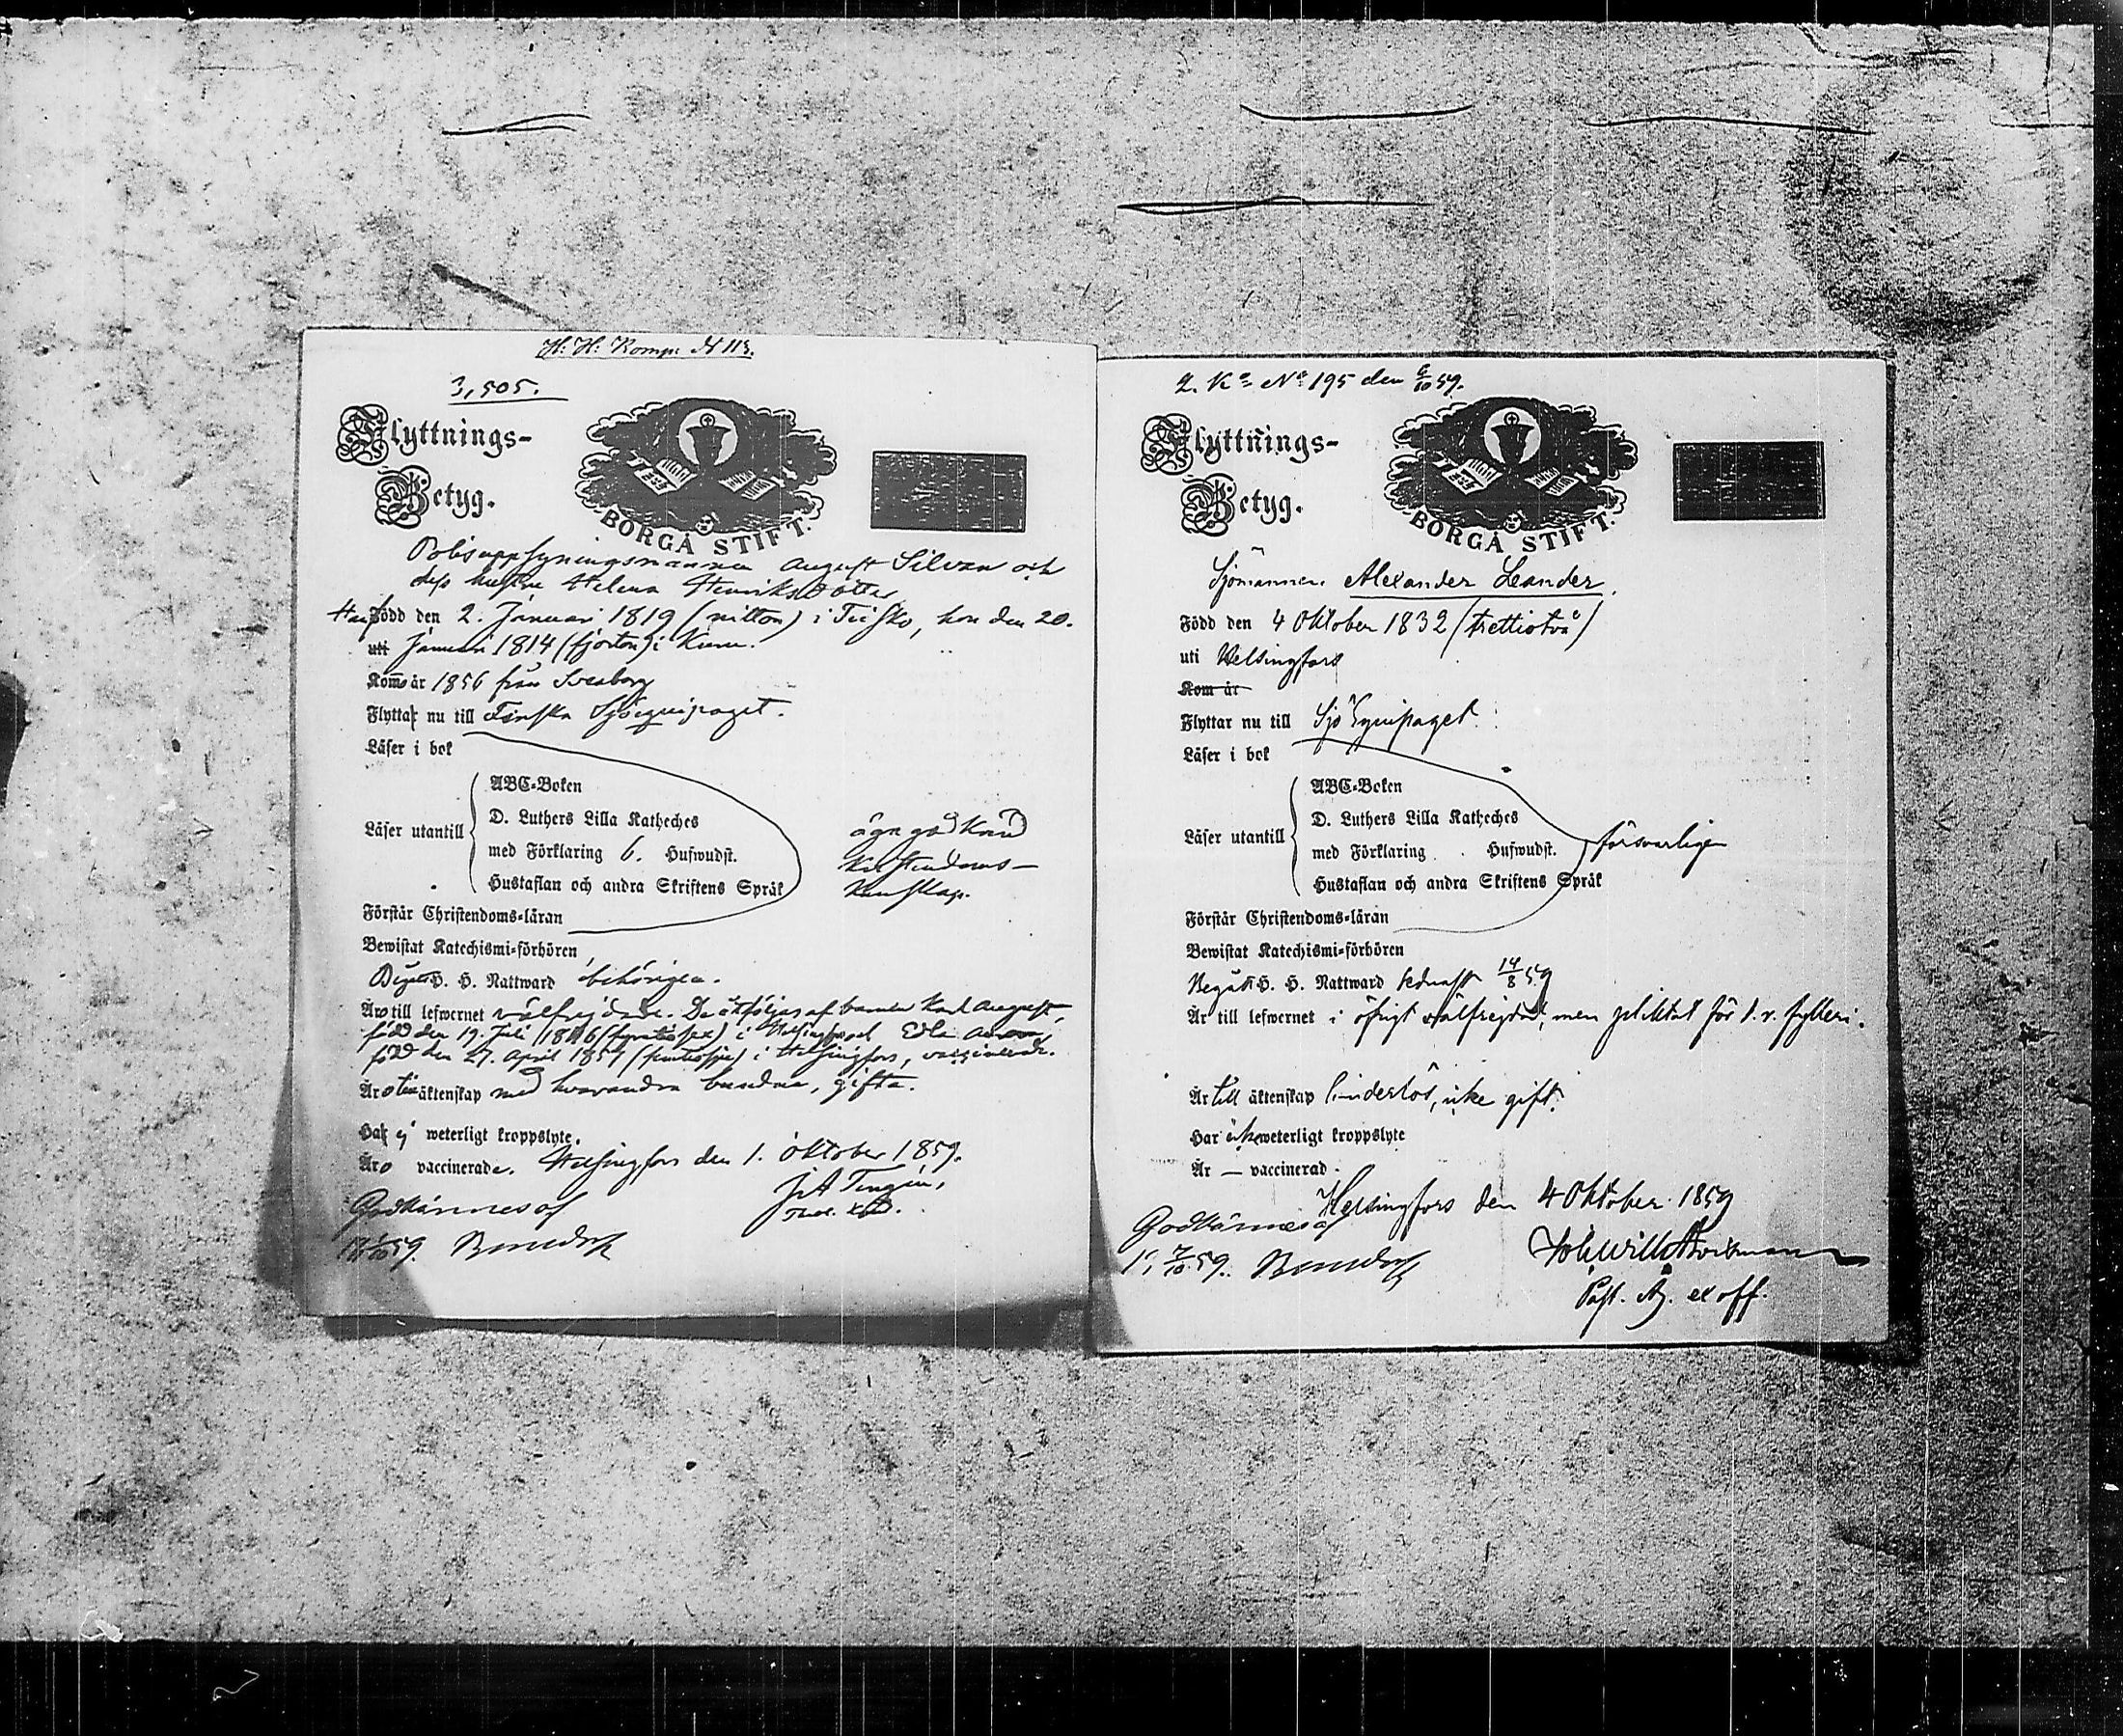 H. H. Komp. N 113.
3,505.
Flyttnings-
Betyg.
BORGÅ STIFT.
Polisuppsyningsmannen August Silvan och
dess hustru Helena Henriksdotter
Han Född den 2. Januari 1819 (nitton) i Teisko, hon den 20.
uti Januari 1814 (fjorton) i Kumo.
Kommo år 1856 från Sveaborg
Flytta nu till Finska Sjöequipaget.
Läser i bok
ABC-Boken
D. Luthers Lilla Katheches
Läser utantill
med Förklaring 6. Hufwudst.
Hustaflan och andra Skriftens Språk
äga god
Kristendoms-
kunskap.
Förstår Christendoms-läran
Bewistat Katechismi-förhören
Begått H. H. Nattward behörigen.
Äro till lefwernet välfrejdade. De åtföljas af barnen Karl August,
född den 19. Juli 1846 (fyratiosex) i Helsingfors och Edla
född den 27. April 1857 (femtiosju) i Helsingfors, vaccinerade.
Äro till äktenskap med hvarandra bundna, gifta.
Ha ej weterligt kroppslyte.
Äro vaccinerade. Helsingfors den 1. oktober 1859.
Godkännes af
2. Ko No 195 den 6/10 59.
Flyttnings-
Betyg.
BORGÅ STIFT.
Sjömannen Alexander Leander.
Född den 4 Oktober 1832 (trettiotvå)
uti Helsingfors
Kom år
Flyttar nu till Sjö Equipaget.
Läser i bok
ABC-Boken
D. Luthers Lilla Katheches
Läser utantill
med Förklaring . Hufwudst.
försvarligen
Hustaflan och andra Skriftens Språk
Förstår Christendoms-läran
Bewistat Katechismi-förhören
Begått H. H. Nattward sednast 14/8 59
Är till lefwernet i öfrigt välfrejdad, men pliktat för 1. r. fylleri.
Är till äktenskap hinderlös, icke gift.
Har icke weterligt kroppslyte
Är — vaccinerad.
Helsingfors den 4 Oktober 1859
Godkännes af
Past. Adj. ex off.